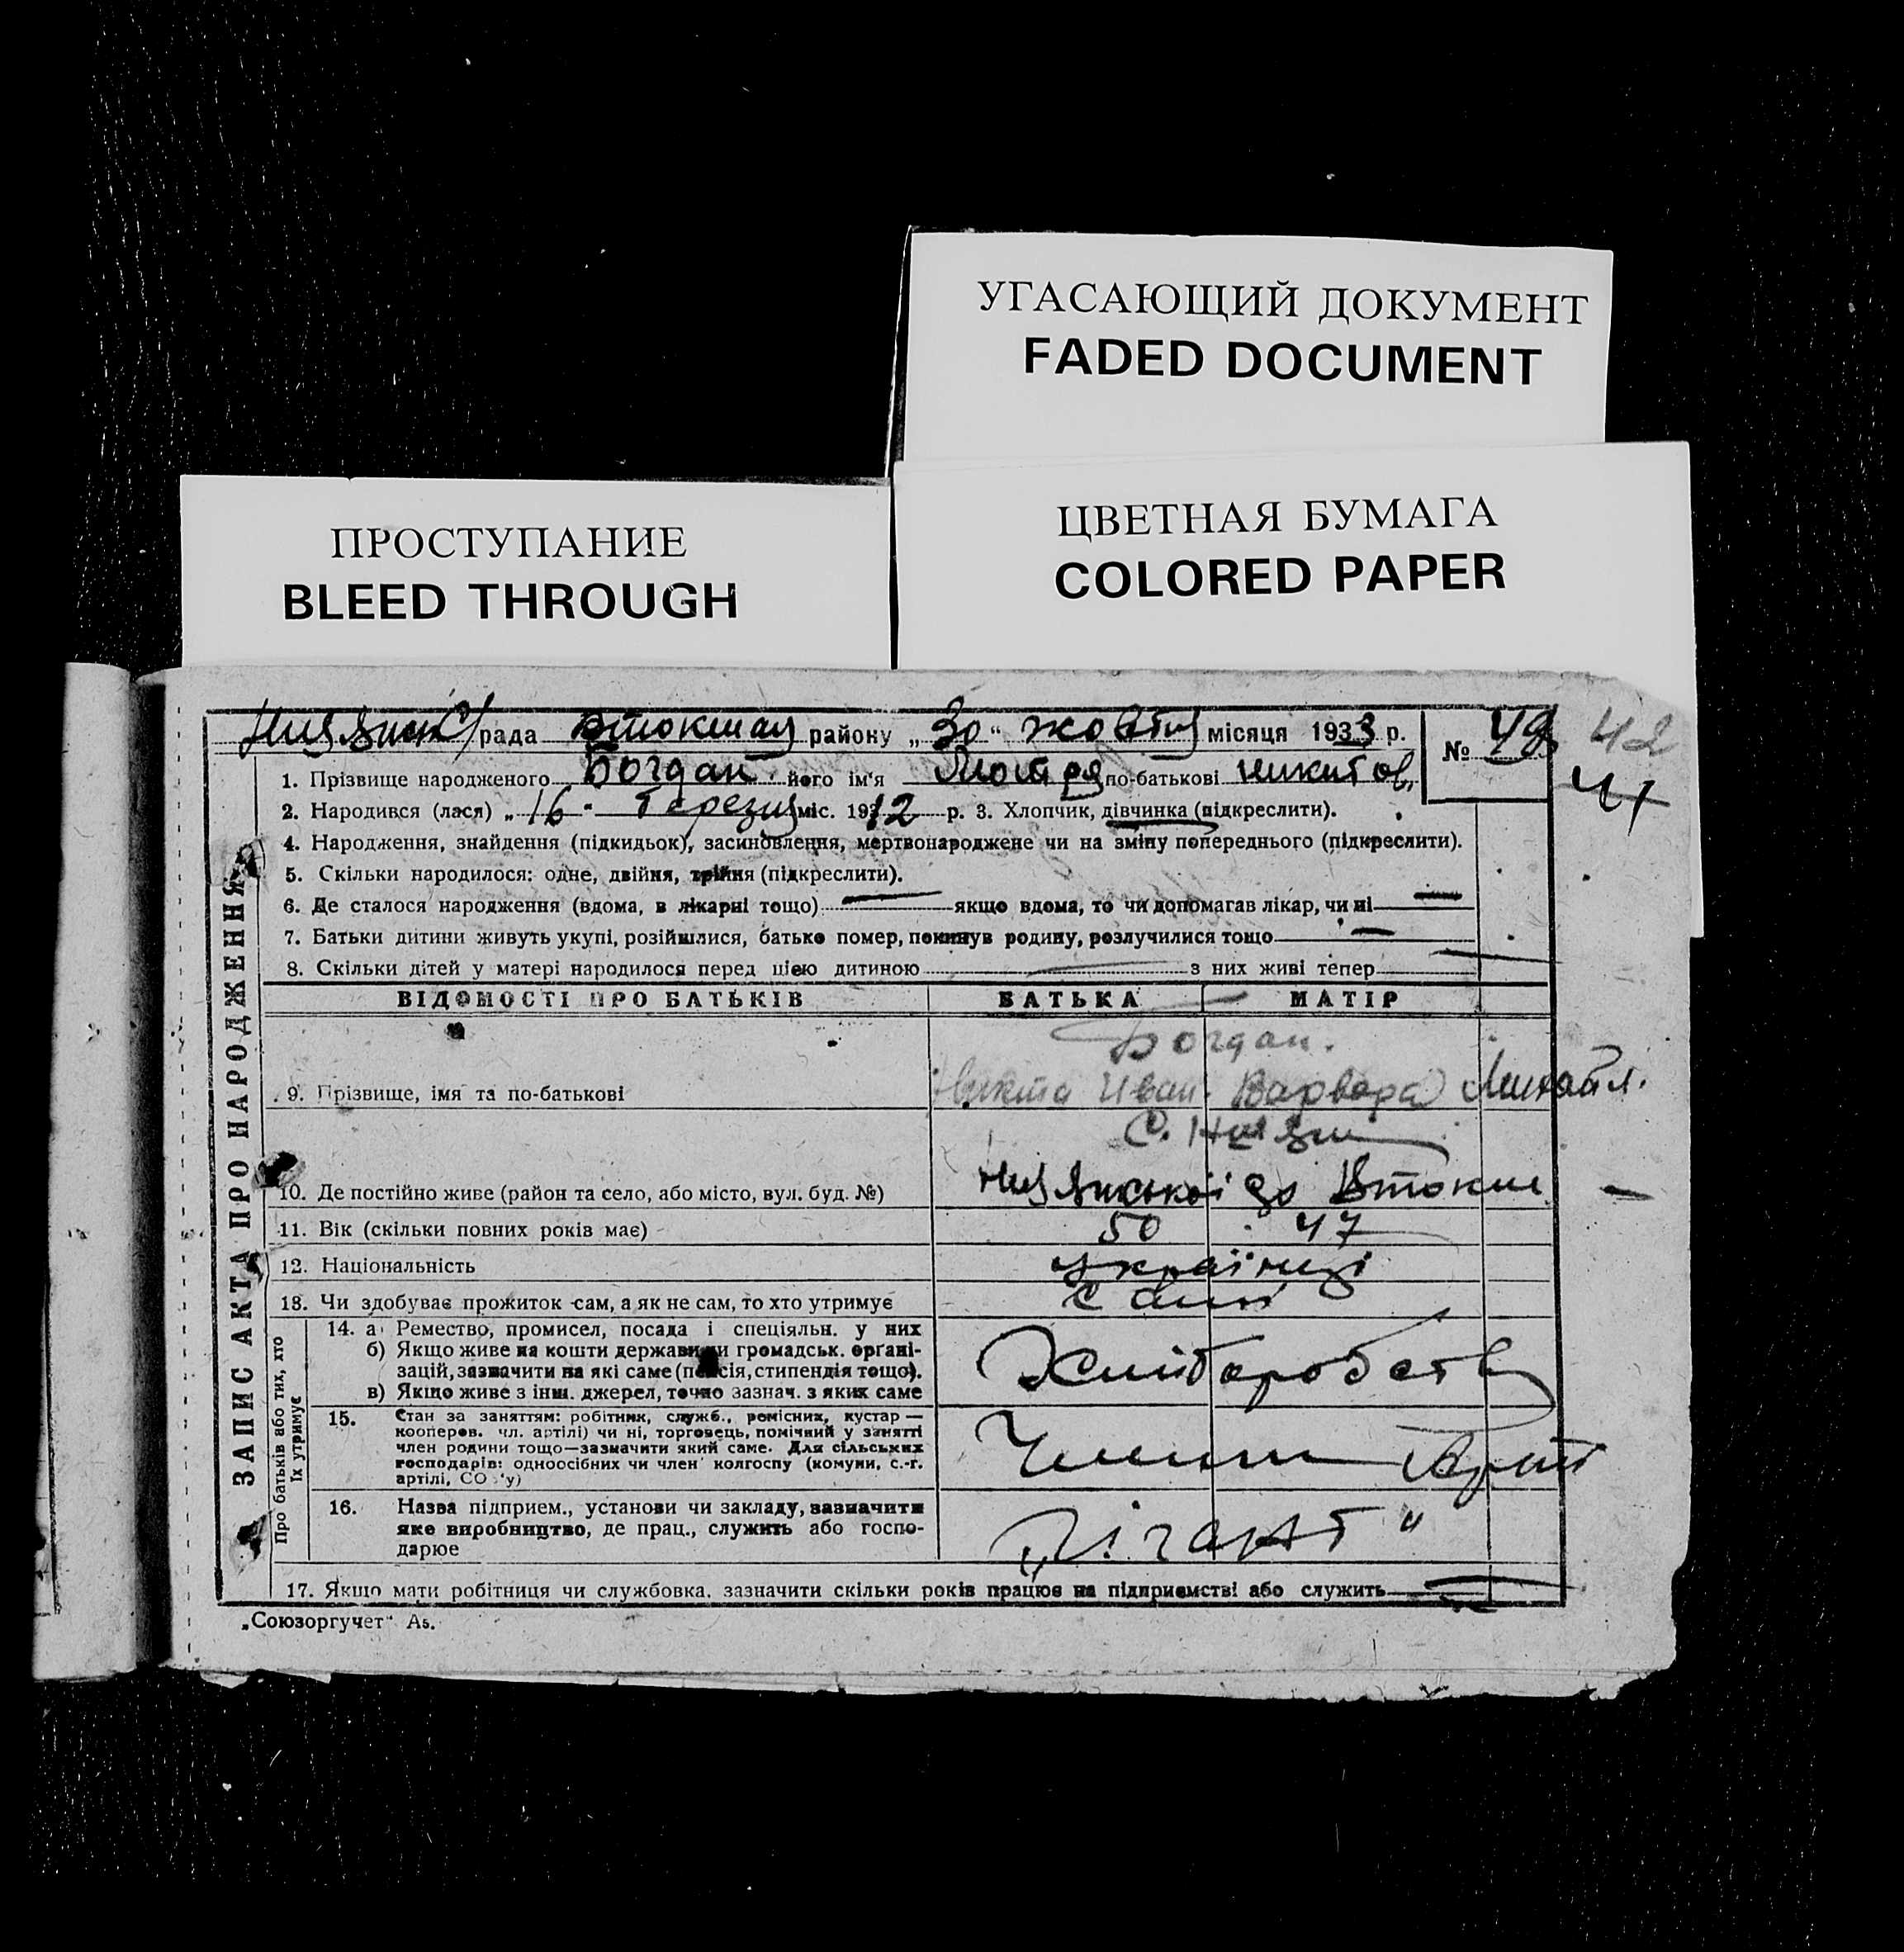 УГАСАЮЩИЙ ДОКУМЕНТ
FADED DOCUMENT
ПРОСТУПАНИЕ
BLEED THROUGH
ЦВЕТНАЯ БУМАГА
COLORED PAPER
рада району „30“ жовтня місяця 1933 р. № 49 42
41
1. Прізвище народженого Богдан його ім'я Мотря по-батькові Никитов.
2. Народився (лася) „16" березня міс. 1912 р. 3. Хлопчик, дівчинка (підкреслити).
4. Народження, знайдення (підкидьок), засиновлення, мертвонароджене чи на зміну попереднього (підкреслити).
5. Скільки народилося: одне, двійня, трійня (підкреслити).
6. Де сталося народження (вдома, в лікарні тощо) — якщо вдома, то чи допомагав лікар, чи ні —
7. Батьки дитини живуть укупі, розійшлися, батько помер, покинув родину, розлучилися тощо —
8. Скільки дітей у матері народилося перед цією дитиною — з них живі тепер —
ЗАПИС АКТА ПРО НАРОДЖЕННЯ
ВІДОМОСТІ ПРО БАТЬКІВ БАТЬКА МАТІР
Богдан.
9. Прізвище, імя та по-батькові Никита Иван. Варвара Михайл.
10. Де постійно живе (район та село, або місто, вул. буд. №)
11. Вік (скільки повних років має) 50 47
12. Національність українці
13. Чи здобуває прожиток сам, а як не сам, то хто утримує самі
Про батьків або тих, хто їх утримує
14. а) Ремество, промисел, посада і спеціяльн. у них
б) Якщо живе на кошти держави чи громадськ. органі-
зацій, зазначити на які саме (пенсія, стипендія тощо).
в) Якщо живе з інш. джерел, точно зазнач. з яких саме
Хліборобств
15. Стан за заняттям: робітник, служб., ремісник, кустар —
кооперов. чл. артілі) чи ні, торговець, помічний у занятті
член родини тощо—зазначити який саме. Для сільських
господарів: одноосібних чи член колгоспу (комуни, с.-г.
артілі, СО у)
Члени Артіл
16. Назва підприєм., установи чи закладу, зазначити
яке виробництво, де прац., служить або госпо-
дарює
„Гігант“
17. Якщо мати робітниця чи службовка, зазначити скільки років працює на підприємстві або служить —
„Союзоргучет“ А5.